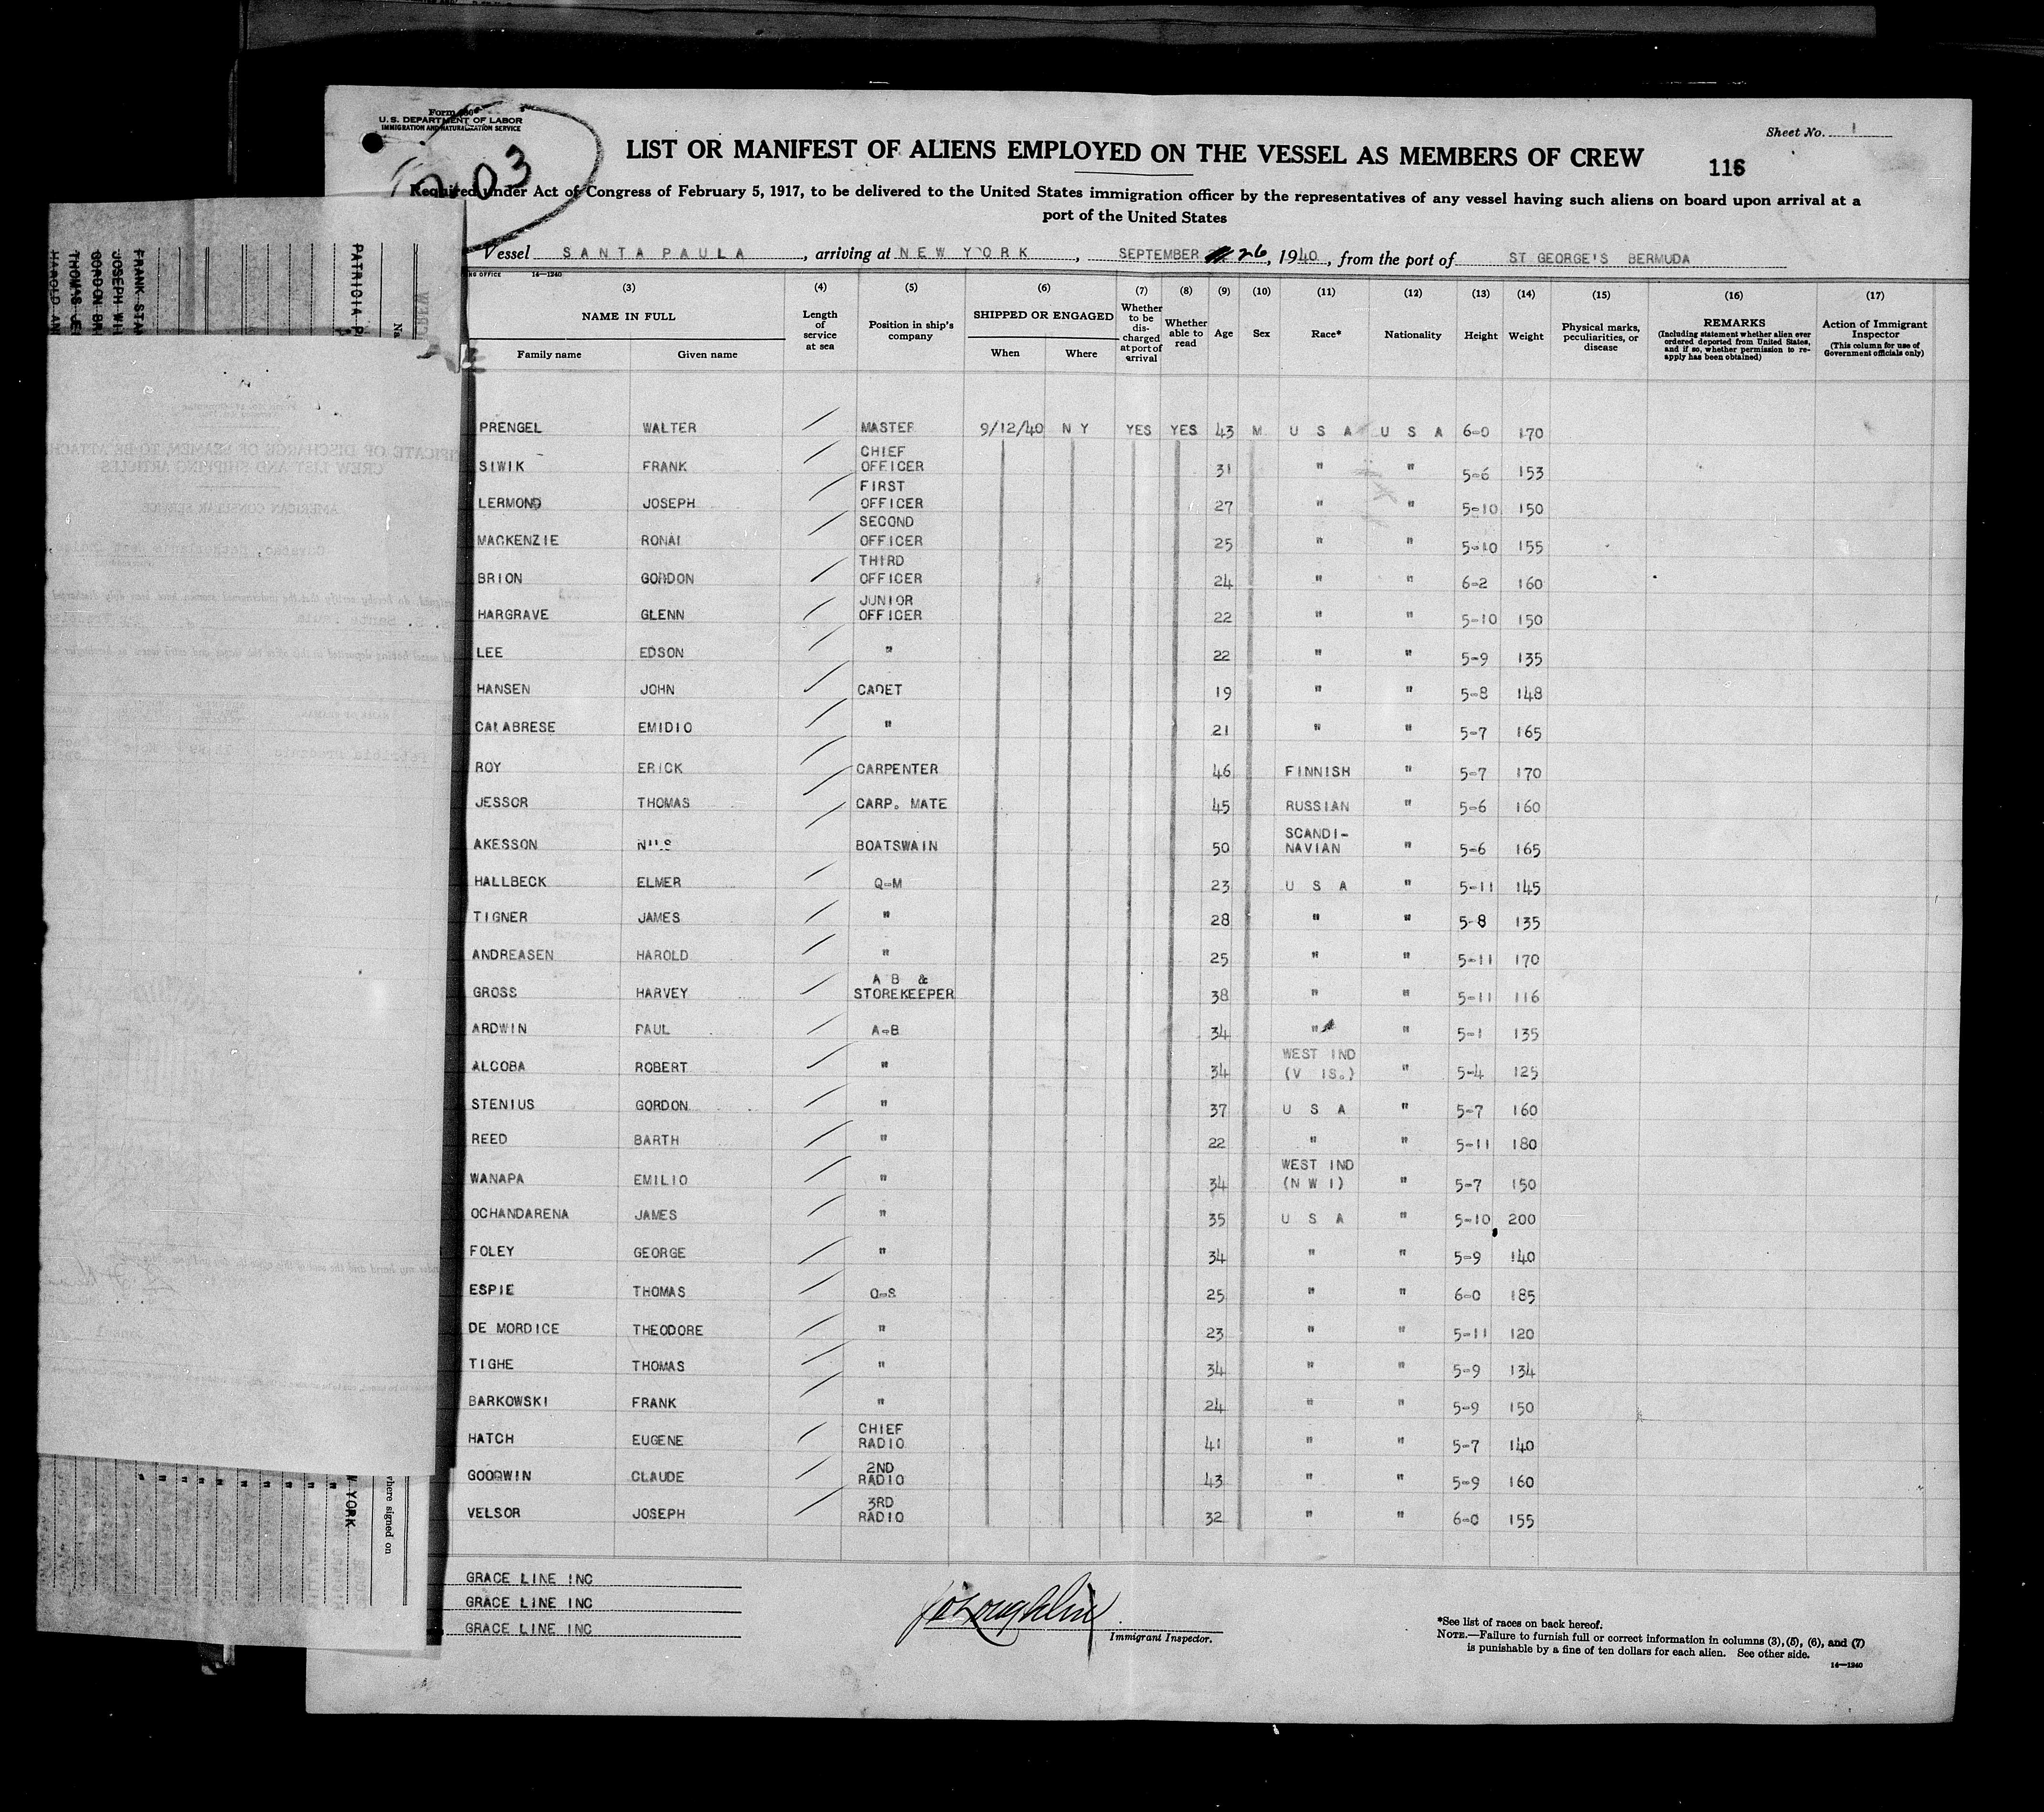 Form 680
U. S. DEPARTMENT OF LABOR
IMMIGRATION AND NATURALIZATION SERVICE
Sheet No. 1
LIST OR MANIFEST OF ALIENS EMPLOYED ON THE VESSEL AS MEMBERS OF CREW
116
Required under Act of Congress of February 5, 1917, to be delivered to the United States immigration officer by the representatives of any vessel having such aliens on board upon arrival at a
port of the United States
Vessel SANTA PAULA, arriving at NEW YORK, SEPTEMBER 26, 1940, from the port of ST GEORGE'S BERMUDA
14—1240
(3) (4) (5) (6) (7) (8) (9) (10) (11) (12) (13) (14) (15) (16) (17)
NAME IN FULL
Family name Given name
Length of service at sea
Position in ship's company
SHIPPED OR ENGAGED
When Where
Whether to be discharged at port of arrival
Whether able to read
Age Sex Race* Nationality Height Weight
Physical marks, peculiarities, or disease
REMARKS
(Including statement whether alien ever ordered deported from United States, and if so, whether permission to reapply has been obtained)
Action of Immigrant Inspector
(This column for use of Government officials only)
PRENGEL WALTER MASTER 9/12/40 N Y YES YES 43 M U S A U S A 6-0 170
SIWIK FRANK CHIEF OFFICER 31 " " 5-6 153
LERMOND JOSEPH FIRST OFFICER 27 " " 5-10 150
MACKENZIE RONAL SECOND OFFICER 25 " " 5-10 155
BRION GORDON THIRD OFFICER 24 " " 6-2 160
HARGRAVE GLENN JUNIOR OFFICER 22 " " 5-10 150
LEE EDSON " 22 " " 5-9 135
HANSEN JOHN CADET 19 " " 5-8 148
CALABRESE EMIDIO " 21 " " 5-7 165
ROY ERICK CARPENTER 46 FINNISH " 5-7 170
JESSOR THOMAS CARP. MATE 45 RUSSIAN " 5-6 160
AKESSON NILS BOATSWAIN 50 SCANDI-NAVIAN " 5-6 165
HALLBECK ELMER Q-M 23 U S A " 5-11 145
TIGNER JAMES " 28 " " 5-8 135
ANDREASEN HAROLD " 25 " " 5-11 170
GROSS HARVEY A B & STOREKEEPER 38 " " 5-11 116
ARDWIN PAUL A-B 34 " " 5-1 135
ALCOBA ROBERT " 34 WEST IND (V IS.) " 5-4 125
STENIUS GORDON " 37 U S A " 5-7 160
REED BARTH " 22 " " 5-11 180
WANAPA EMILIO " 34 WEST IND (N W I) " 5-7 150
OCHANDARENA JAMES " 35 U S A " 5-10 200
FOLEY GEORGE " 34 " " 5-9 140
ESPIE THOMAS O-S 25 " " 6-0 185
DE MORDICE THEODORE " 23 " " 5-11 120
TIGHE THOMAS " 34 " " 5-9 134
BARKOWSKI FRANK " 24 " " 5-9 150
HATCH EUGENE CHIEF RADIO 41 " " 5-7 140
GOODWIN CLAUDE 2ND RADIO 43 " " 5-9 160
VELSOR JOSEPH 3RD RADIO 32 " " 6-0 155
GRACE LINE INC
GRACE LINE INC
GRACE LINE INC
Immigrant Inspector.
*See list of races on back hereof.
NOTE.—Failure to furnish full or correct information in columns (3), (5), (6), and (7)
is punishable by a fine of ten dollars for each alien. See other side.
14—1240